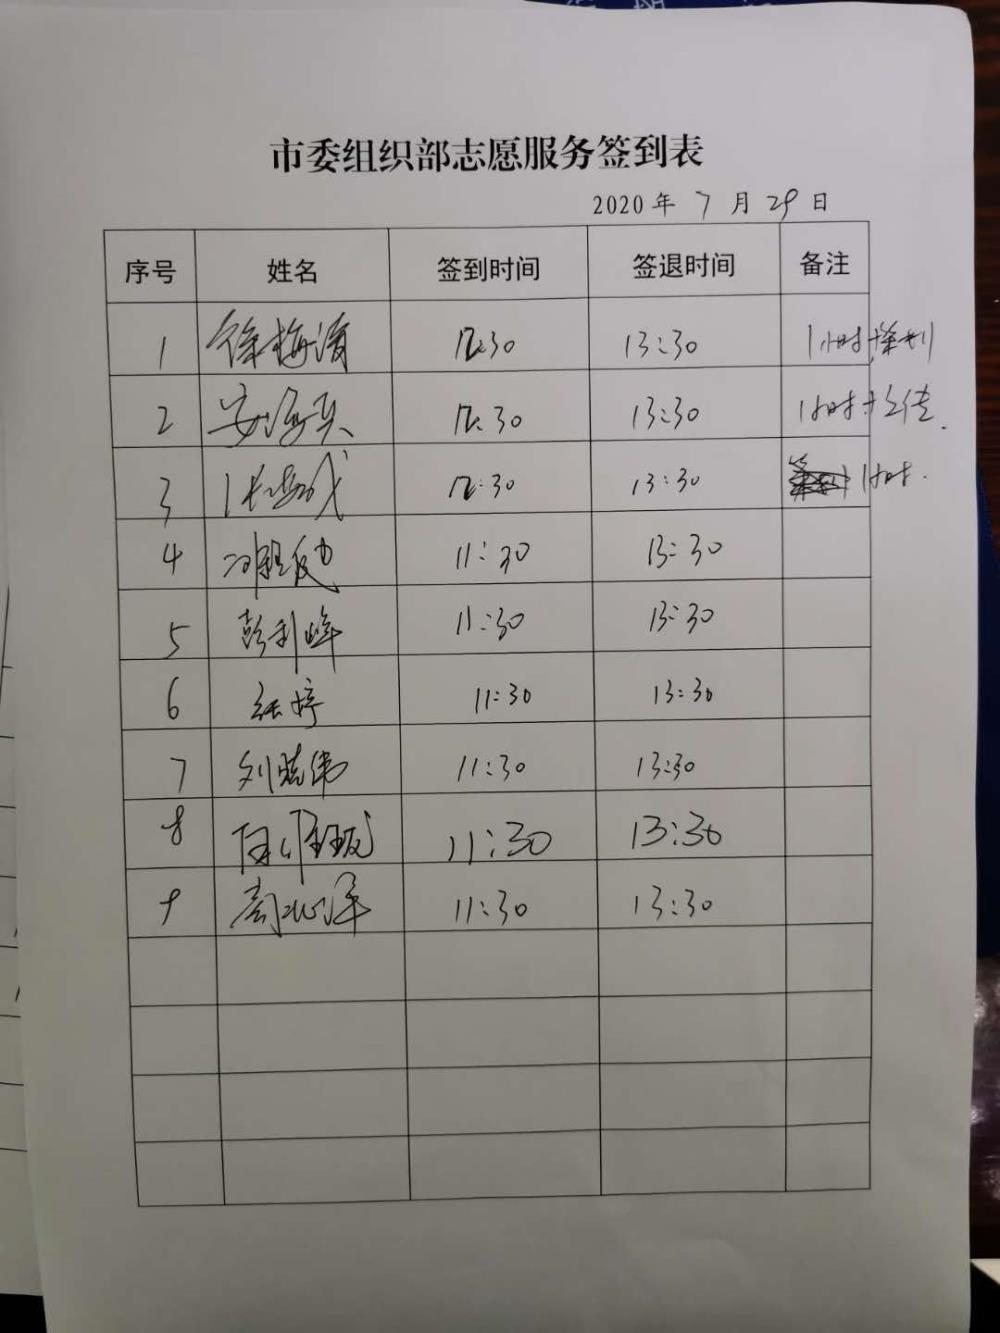 市委组织部志愿服务签到表
2020 年 7 月 29 日
序号 姓名 签到时间 签退时间 备注
1 徐梅 12:30 13:30 1小时
2 安海 12:30 13:30 1小时+上传.
3 12:30 13:30 1小时.
4 11:30 13:30
5 彭利峰 11:30 13:30
6 张婷 11:30 13:30
7 刘晓伟 11:30 13:30
8 11:30 13:30
9 11:30 13:30